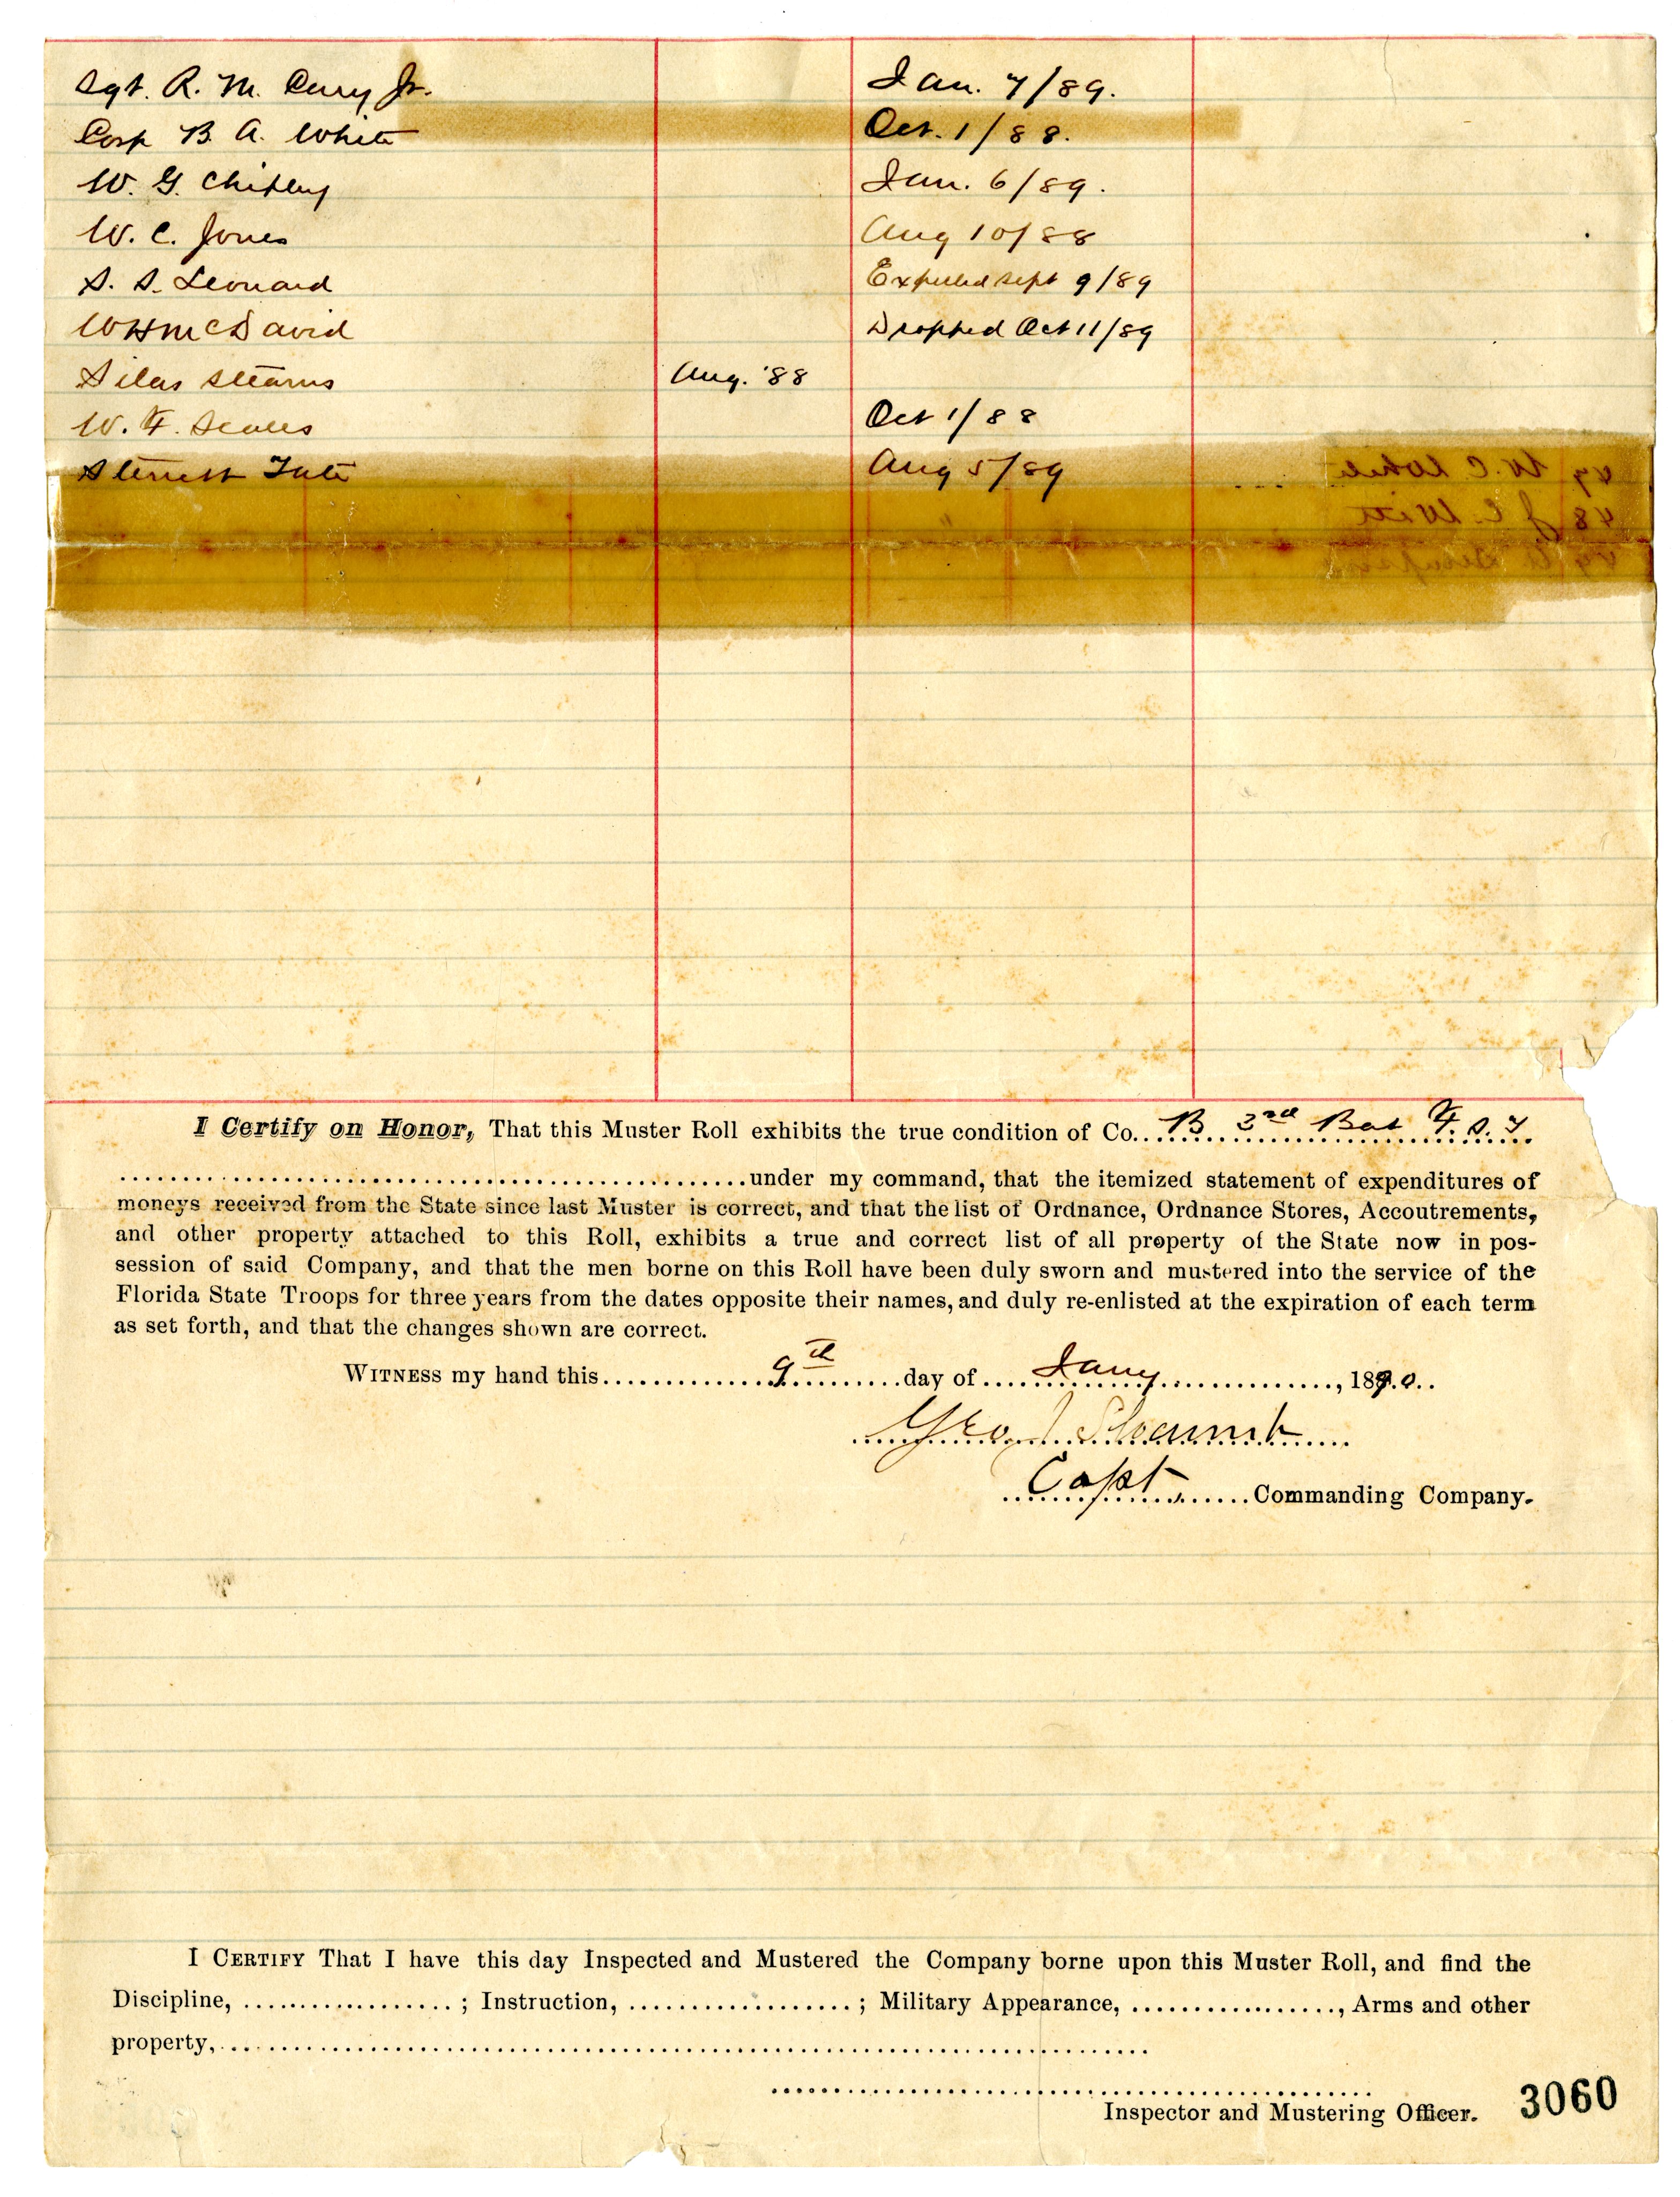 Sgt. R. M. Cary Jr. Jan. 7/89.
Corp B. A. White Oct. 1/88.
W. G. Chipley Jan. 6/89.
W. C. Jones Aug 10/88
S. S. Leonard Expelled Sept 9/89
W H McDavid Dropped Oct 11/89
Silas Stearns Aug. '88
W. F. Scales Oct 1/88
Sterrett Tate Aug 5/89
W. C. White
48 J. C. Witt
I Certify on Honor, That this Muster Roll exhibits the true condition of Co. B 3rd Bat F. S. T
under my command, that the itemized statement of expenditures of
moneys received from the State since last Muster is correct, and that the list of Ordnance, Ordnance Stores, Accoutrements,
and other property attached to this Roll, exhibits a true and correct list of all property of the State now in pos-
session of said Company, and that the men borne on this Roll have been duly sworn and mustered into the service of the
Florida State Troops for three years from the dates opposite their names, and duly re-enlisted at the expiration of each term
as set forth, and that the changes shown are correct.
WITNESS my hand this 9th day of Jany, 1890
Geo
Capt Commanding Company.
I CERTIFY That I have this day Inspected and Mustered the Company borne upon this Muster Roll, and find the
Discipline, ; Instruction, ; Military Appearance, , Arms and other
property,
Inspector and Mustering Officer. 3060